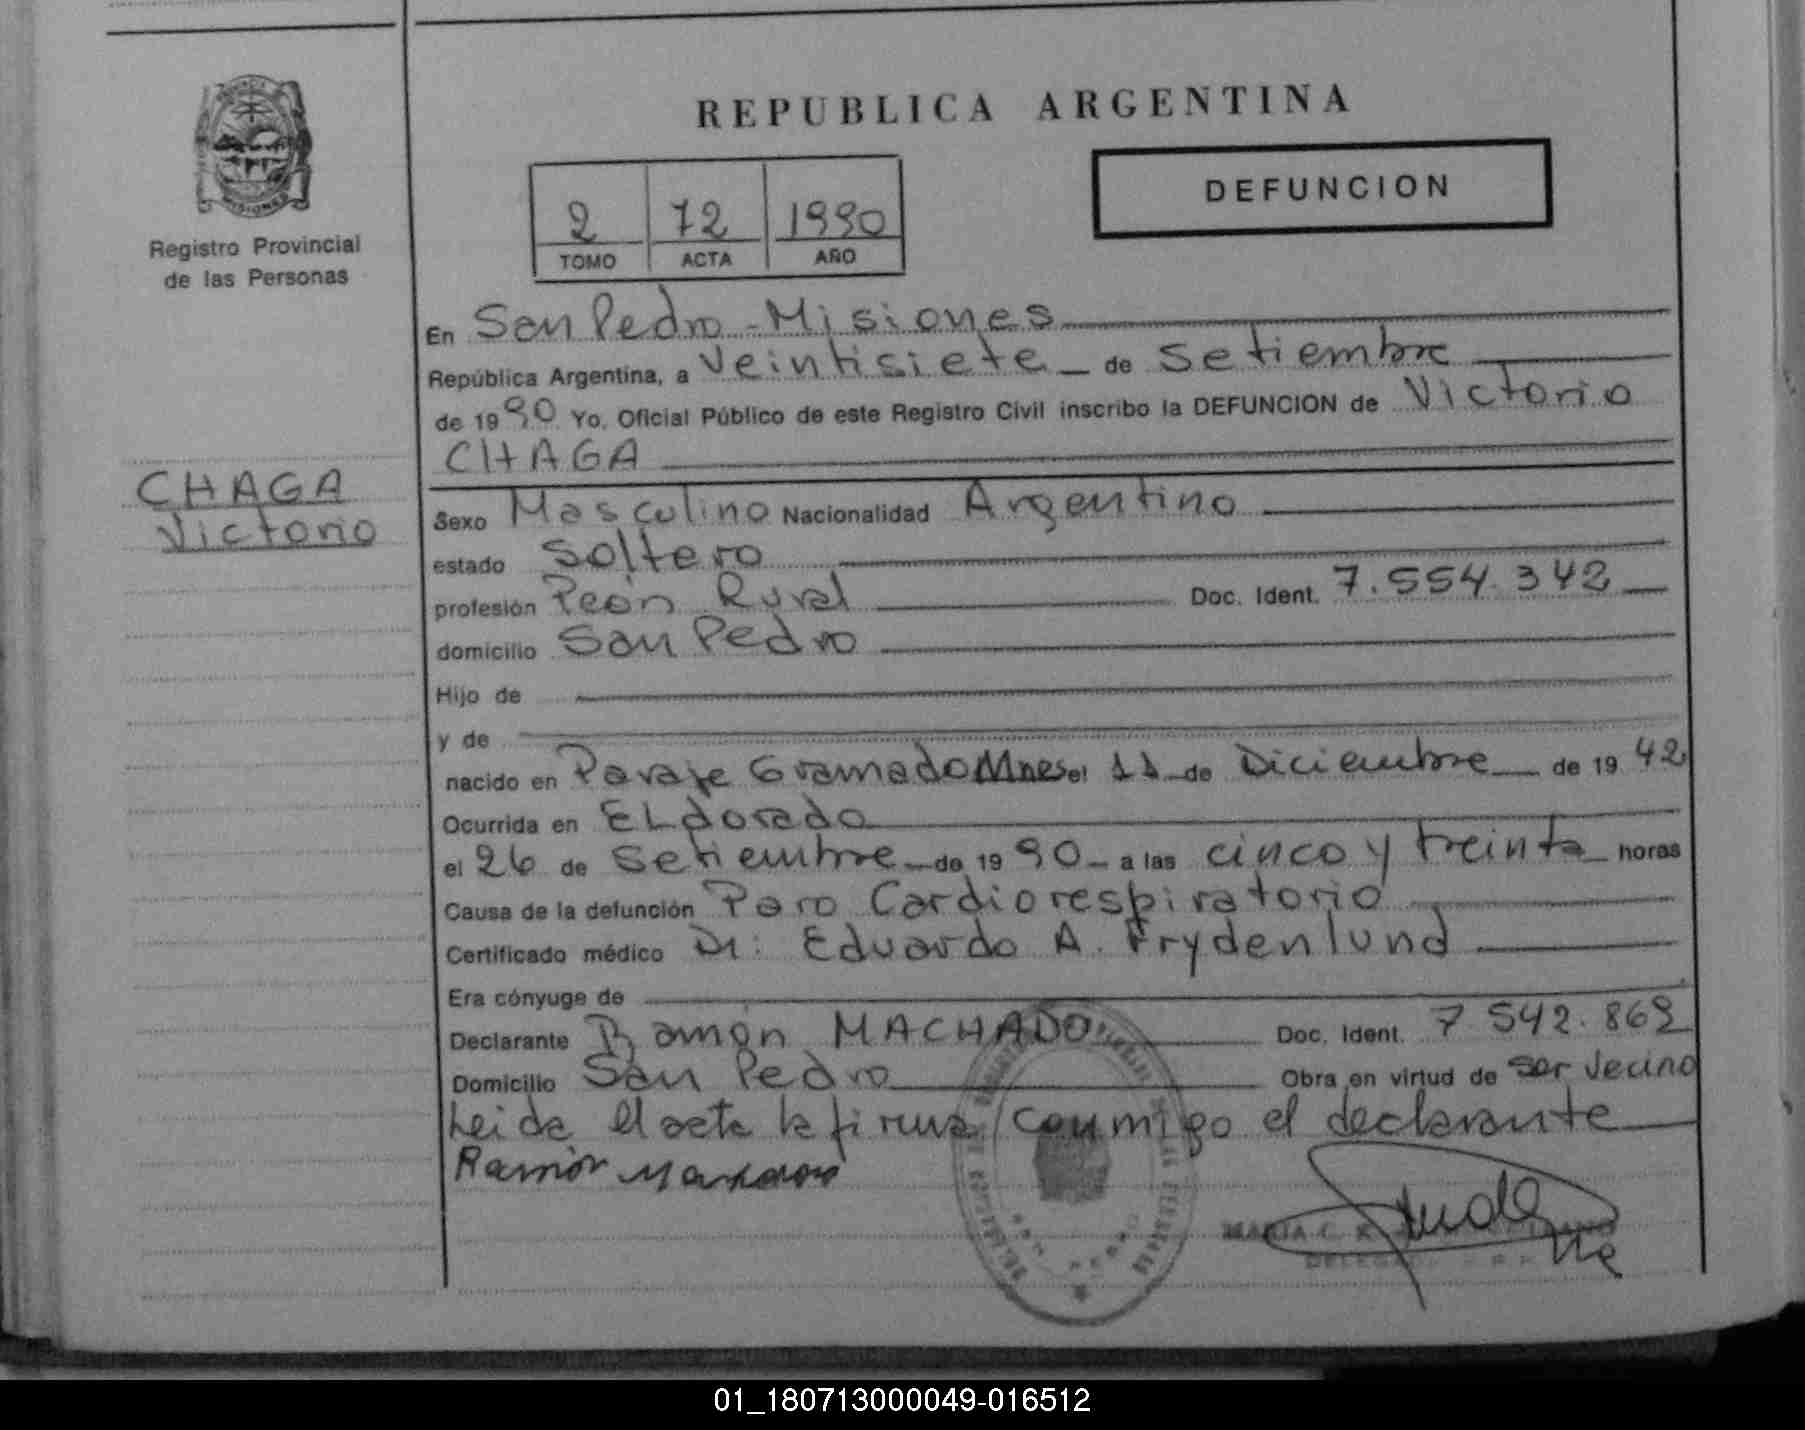 REPUBLICA ARGENTINA
MISIONES
Registro Provincial
de las Personas
2 72 1990
TOMO ACTA AÑO
DEFUNCION
En San Pedro - Misiones
República Argentina, a Veintisiete de Setiembre
de 1990 Yo, Oficial Público de este Registro Civil inscribo la DEFUNCION de Victorio
CHAGA
CHAGA
Victorio
Sexo Masculino Nacionalidad Argentino
estado Soltero
profesión Peón Rural Doc. Ident. 7.554.342
domicilio San Pedro
Hijo de
y de
nacido en Paraje Gramado Mnes el 11 de Diciembre de 1942
Ocurrida en ELdorado
el 26 de Setiembre de 1990 a las cinco y treinta horas
Causa de la defunción Paro Cardiorespiratorio
Certificado médico Dr: Eduardo A. Frydenlund
Era cónyuge de
Declarante Ramón MACHADO Doc. Ident. 7.542.869
Domicilio San Pedro Obra en virtud de ser vecino
Leida el acta la firma conmigo el declarante
Ramón
MARIA C.
01_180713000049-016512